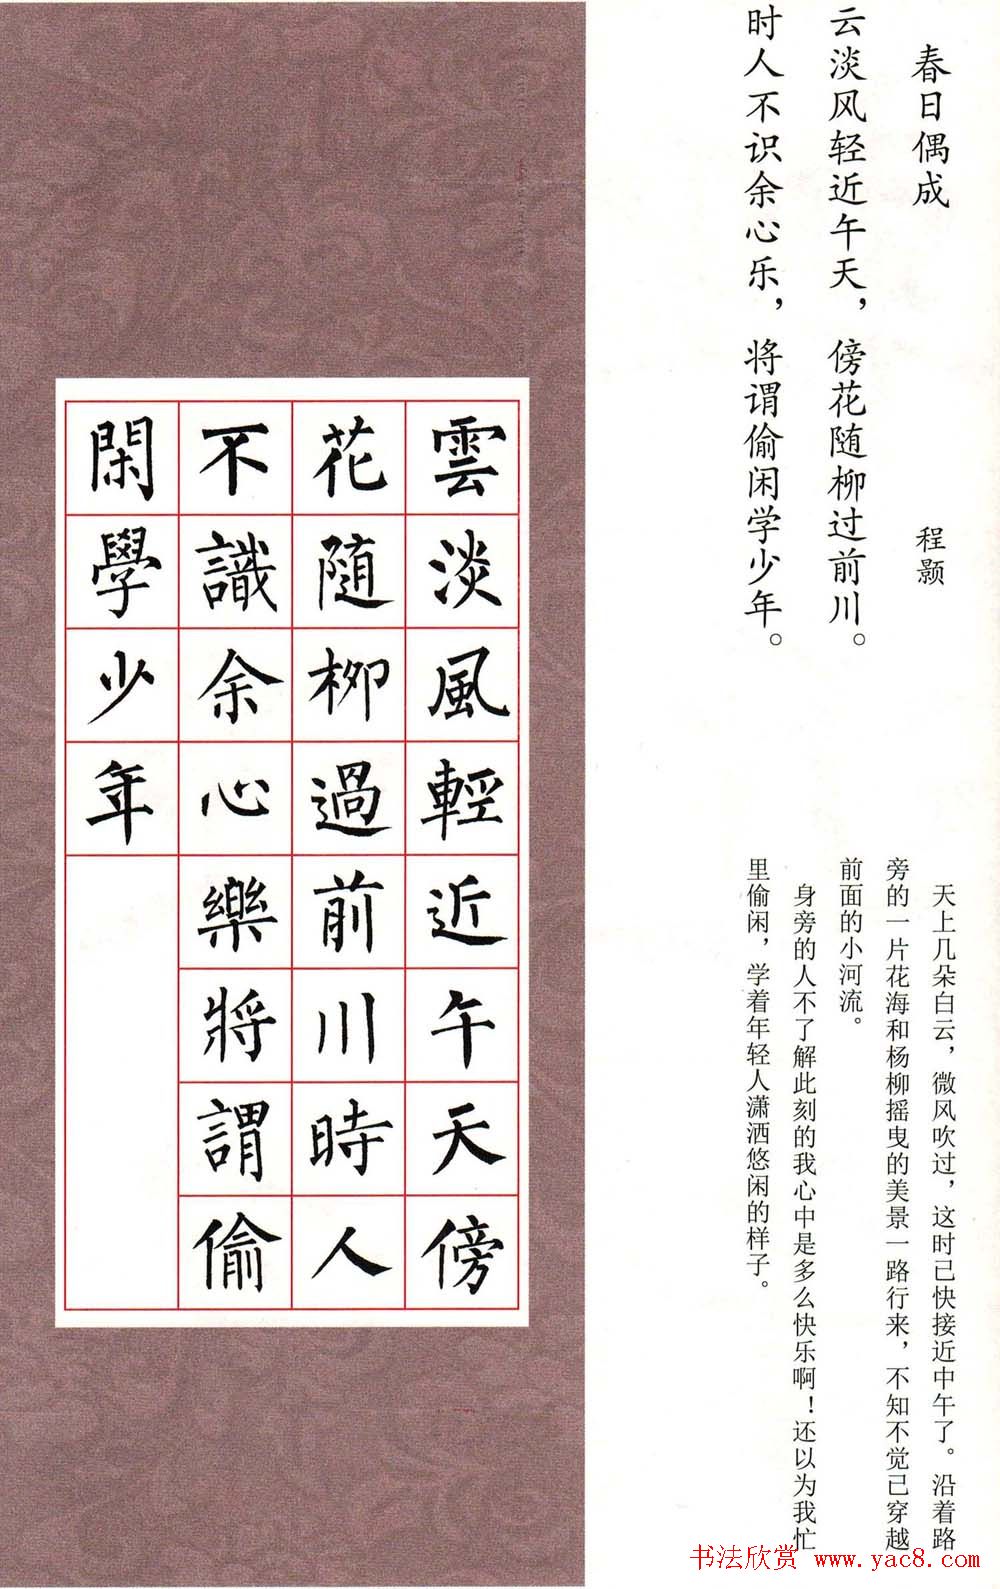 春日偶成
程颢
云淡风轻近午天，傍花随柳过前川。
时人不识余心乐，将谓偷闲学少年。
天上几朵白云，微风吹过，这时已快接近中午了。沿着路
旁的一片花海和杨柳摇曳的美景一路行来，不知不觉已穿越
前面的小河流。
身旁的人不了解此刻的我心中是多么快乐啊！还以为我忙
里偷闲，学着年轻人潇洒悠闲的样子。
雲淡風輕近午天傍
花随柳過前川時人
不識余心樂將謂偷
閑學少年
书法欣赏 www.yac8.com